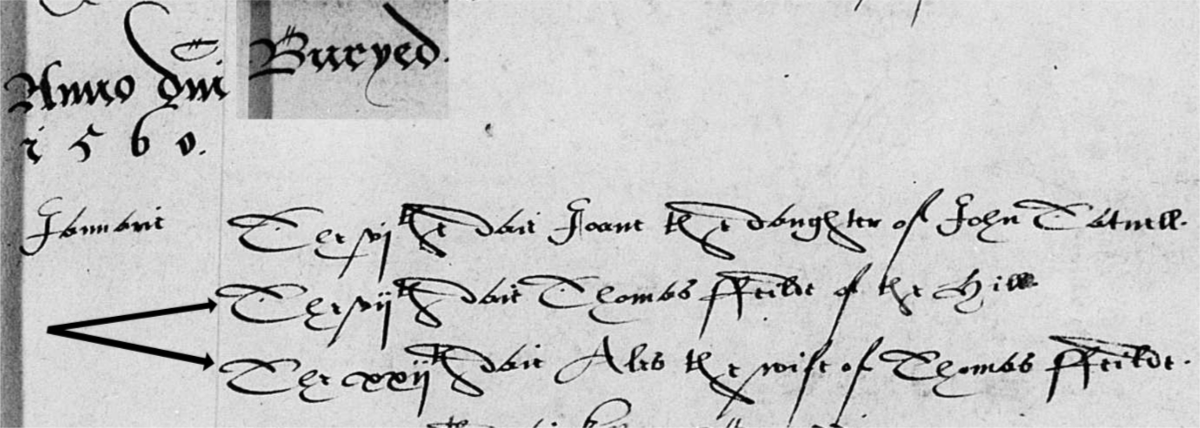 Buryed.
Anno dni
1560.
Januarie
The vjth daie Joane the doughter of John Totnell.
The vijth daie Thomas ffeilde of the Hill
The xxijth daie Ales the wife of Thomas ffeilde.